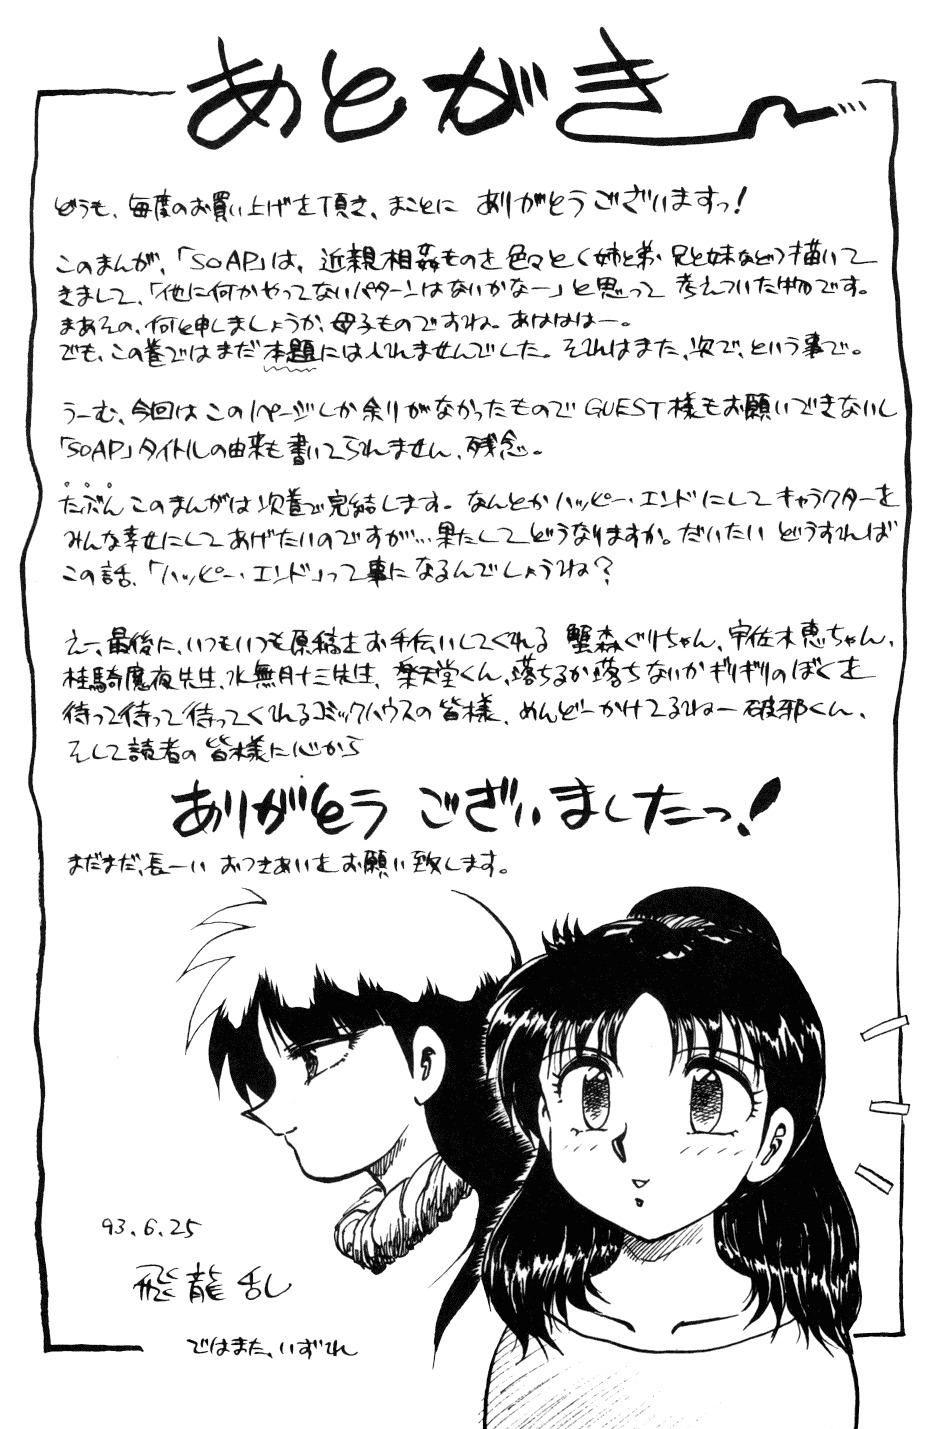 あとがき〜…
どうも、毎度のお買い上げを頂き、まことに ありがとうございますっ!
このまんが、「SOAP」は、近親相姦ものを色々とく姉と弟・兄と妹など〉描いて
きまして、「他に何かやってないパターンはないかなー」と思って 考えついた物です。
まあその、何と申しましょうか、母子ものですね。あはははー。
でも、この巻ではまだ本題には入れませんでした。それはまた、次で、という事で。
うーむ、今回はこの1ページしか余りがなかったものでGUEST様もお願いできないし
「SOAP」タイトルの由来も書いてられません、残念。
たぶんこのまんがは次巻で完結します。なんとかハッピー・エンドにしてキャラクターを
みんな幸せにしてあげたいのですが…果たしてどうなりますか。だいたいどうすれば
この話、「ハッピー・エンド」って事になるんでしょうね?
えー、最後に、いつもいつも原稿をお手伝いしてくれる 蟹森ぐりちゃん、宇佐木恵ちゃん、
桂騎魔夜先生、水無月十三先生、楽天堂くん、落ちるか落ちないかギリギリのぼくを
待って待って待ってくれるコミックハウスの皆様、めんどーかけてるねー破邪くん、
そして読者の皆様に心から
ありがとうございましたっ!
まだまだ、長ーいおつきあいをお願い致します。
93.6.25
飛龍乱
ではまた、いずれ